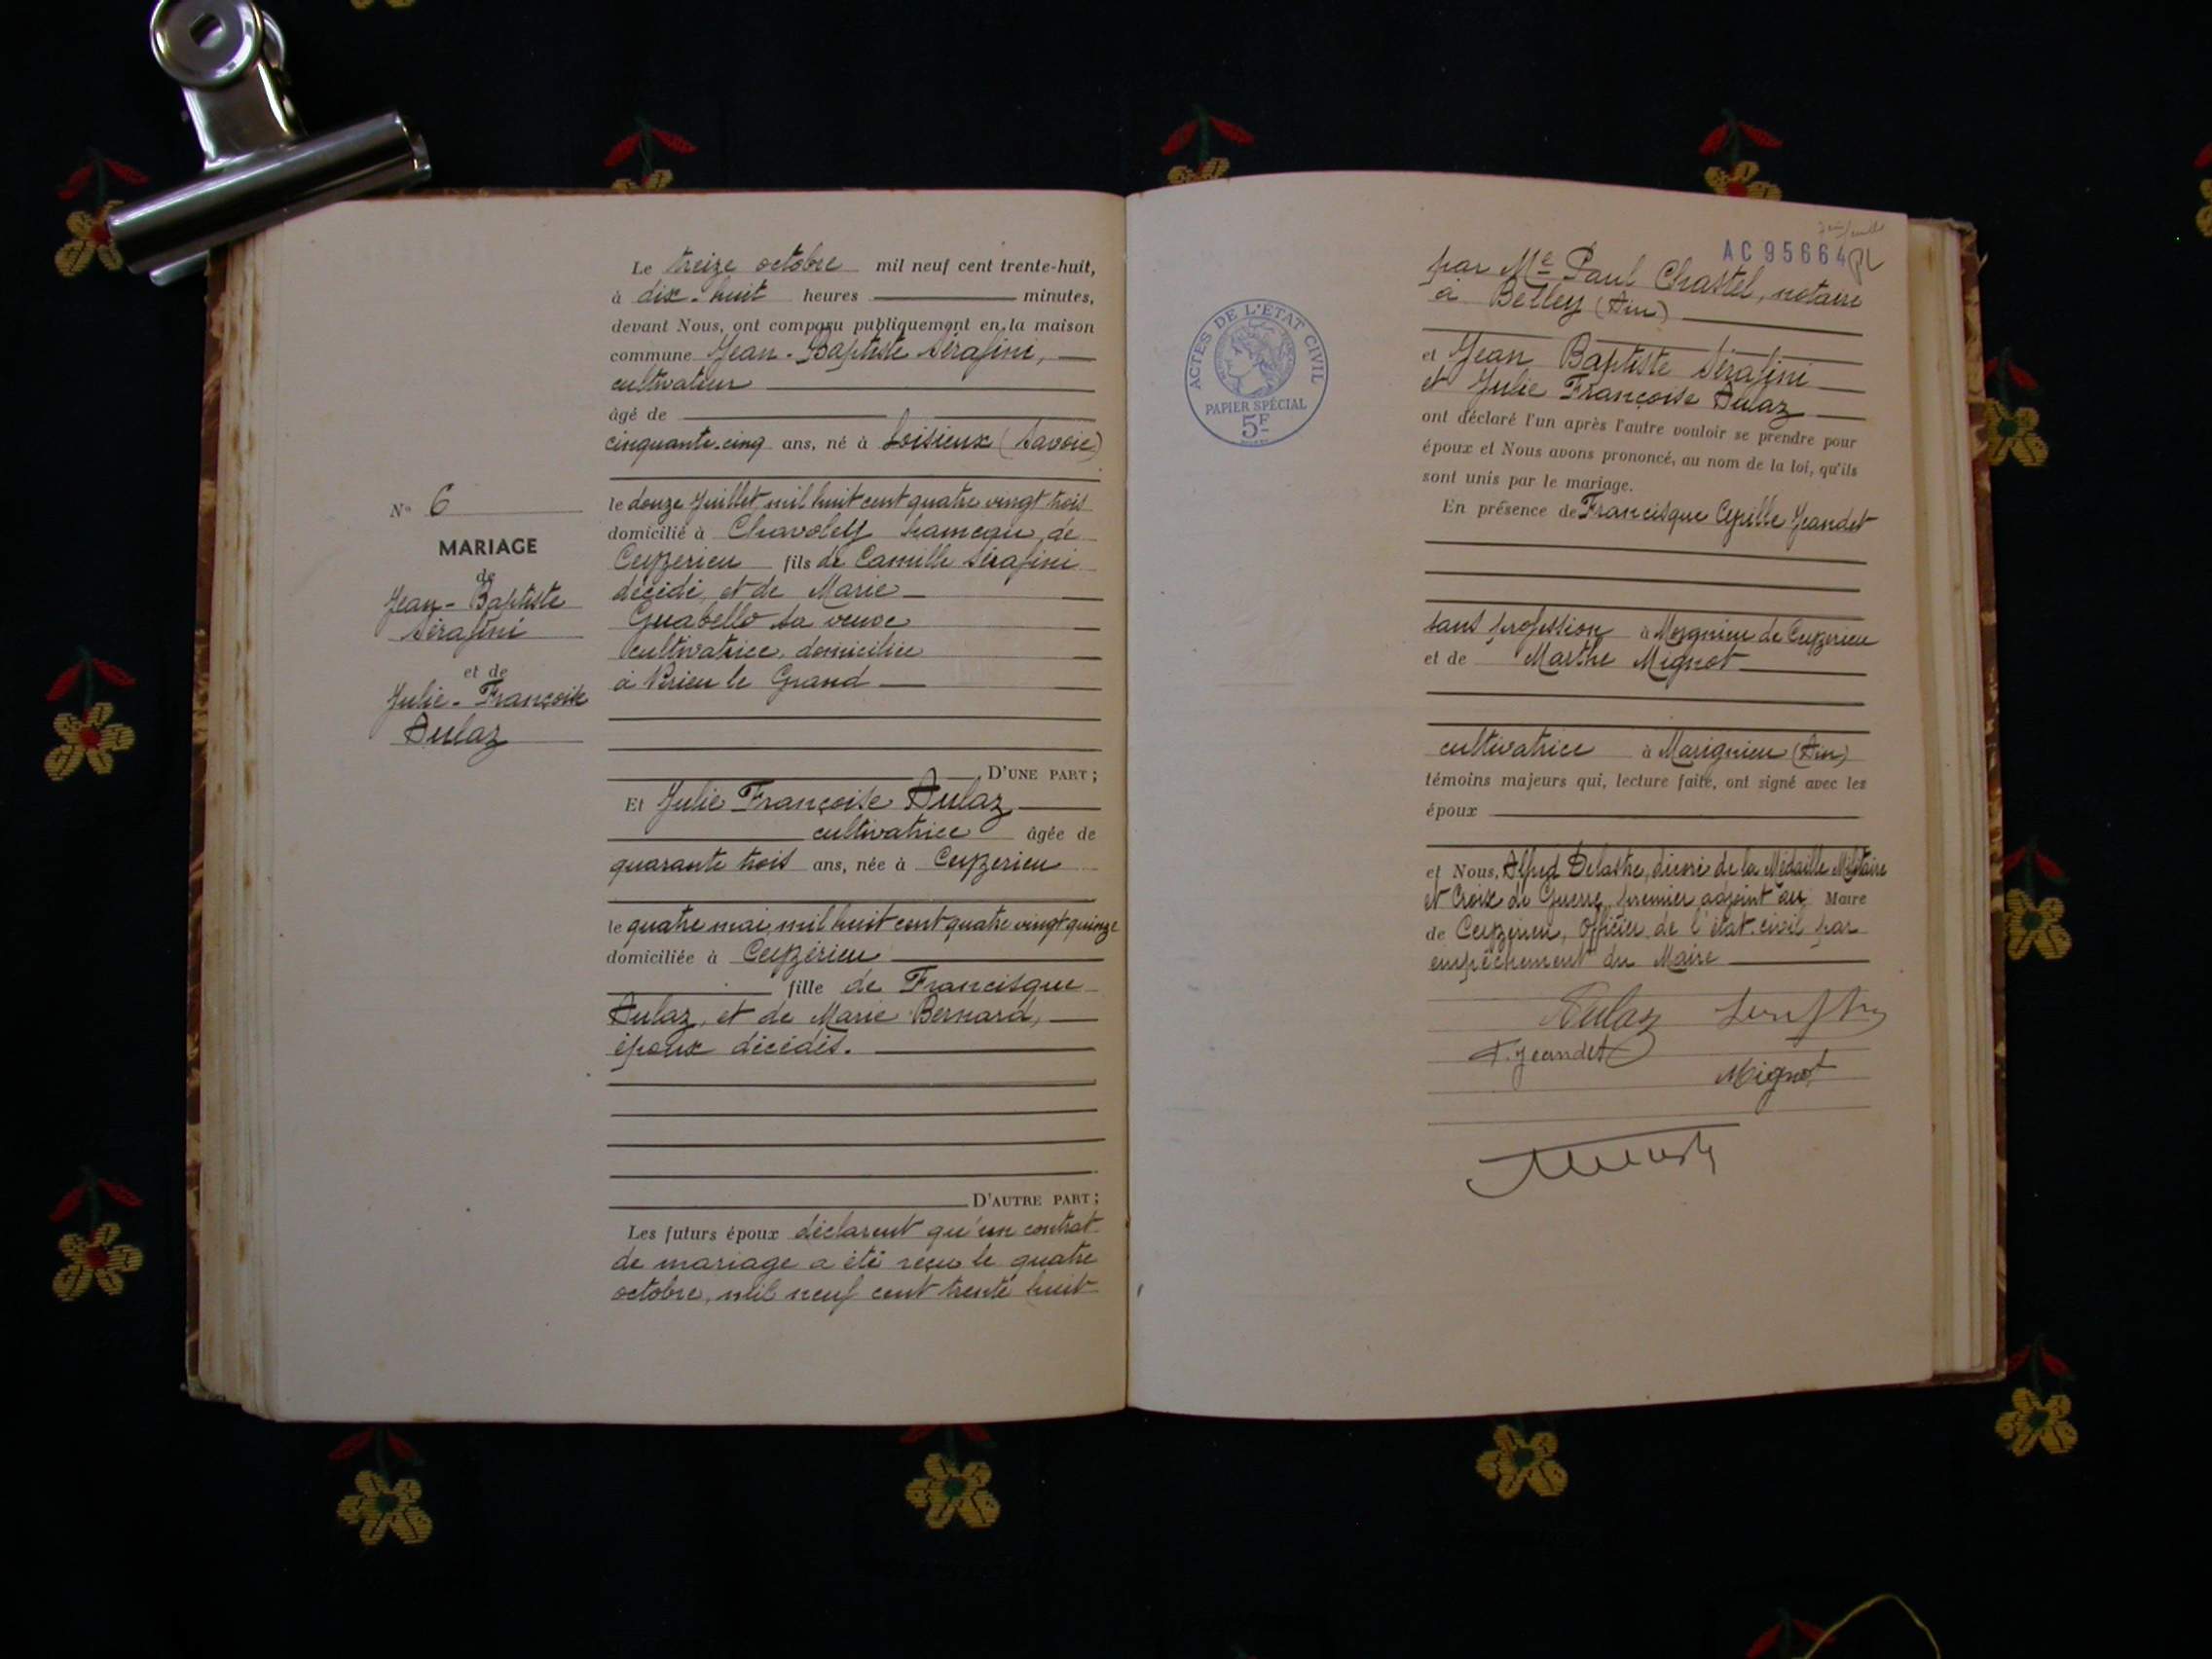 N° 6
MARIAGE
de
Jean-Baptiste
Sérafini
et de
Julie-Françoise
Aulaz
Le treize octobre mil neuf cent trente-huit,
à dix-huit heures minutes,
devant Nous, ont comparu publiquement en la maison
commune Jean-Baptiste Sérafini,
cultivateur
âgé de
cinquante-cinq ans, né à Loisieux (Savoie)
le douze juillet mil huit cent quatre vingt trois
domicilié à Chavoley hameau de
Ceyzerieu fils de Camille Sérafini
décédé, et de Marie
Guabello sa veuve
cultivatrice, domiciliée
à Virieu le Grand
D'UNE PART;
Et Julie Françoise Aulaz
cultivatrice âgée de
quarante trois ans, née à Ceyzerieu
le quatre mai, mil huit cent quatre vingt quinze
domiciliée à Ceyzérieu
fille de Francisque
Aulaz, et de Marie Bernard,
époux décédés.
D'AUTRE PART;
Les futurs époux déclarent qu'un contrat
de mariage a été reçu le quatre
octobre, mil neuf cent trente huit
AC 95664
par Me Paul Chastel, notaire
à Belley (Ain)
ACTES DE L'ÉTAT CIVIL
PAPIER SPÉCIAL
5F
et Jean Baptiste Sérafini
et Julie Françoise Aulaz
ont déclaré l'un après l'autre vouloir se prendre pour
époux et Nous avons prononcé, au nom de la loi, qu'ils
sont unis par le mariage.
En présence de Francisque Cyrille Jeandet
sans profession à de Ceyzerieu
et de Marthe Mignot
cultivatrice à Marignieu (Ain)
témoins majeurs qui, lecture faite, ont signé avec les
époux
et Nous, Alfred Delastre, décoré de la Médaille Militaire
et Croix de Guerre, premier adjoint au Maire
de Ceyzérieu, Officier de l'état-civil par
empêchement du Maire
Aulaz
F. Jeandet
Mignot